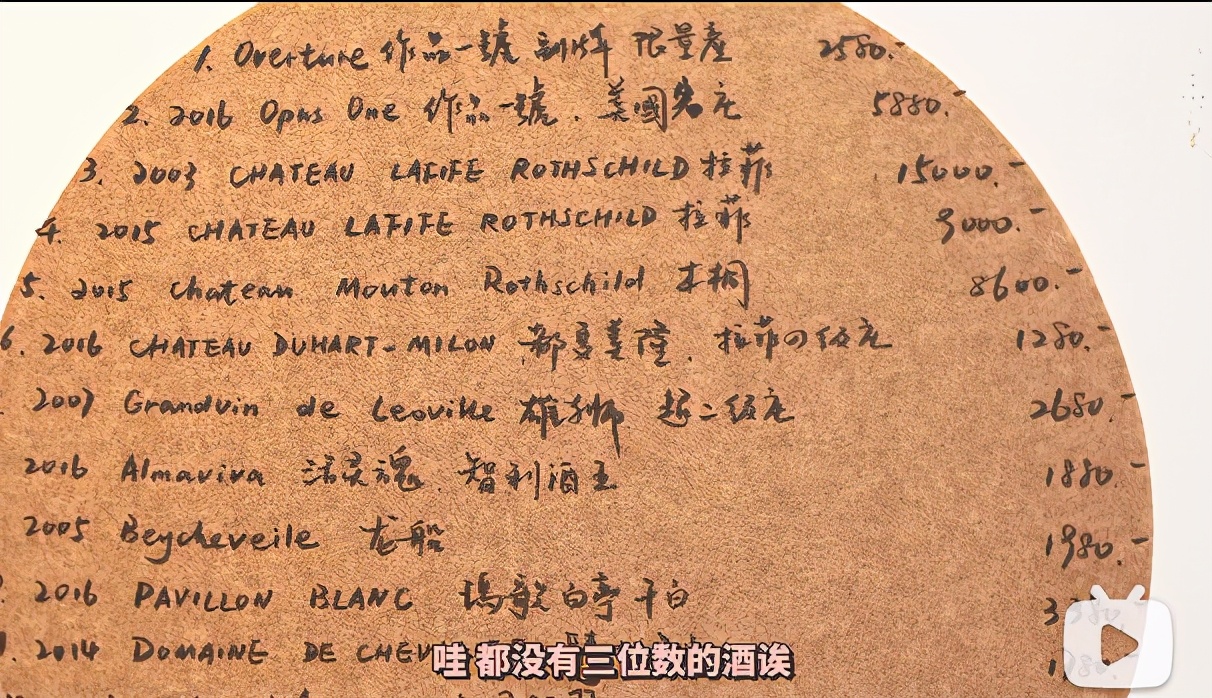 1. Overture 作品一號 副牌 限量產 2580.-
2. 2016 Opus One 作品一號. 美國名庄 5880.-
3. 2003 CHATEAU LAFIFE ROTHSCHILD 拉菲 15000.-
4. 2015 CHATEAU LAFIFE ROTHSCHILD 拉菲 9000.-
5. 2015 Chateau Mouton Rothschild 木桐 8600.-
6. 2016 CHATEAU DUHART-MILON 都夏美隆. 拉菲の级庄 1280.-
2007 Grandvin de Leoville 雄狮 超二级庄 2680.-
2016 Almaviva 活灵魂. 智利酒王 1880.-
2005 Beycheveile 龙船 1980.-
2016 PAVILLON BLANC 瑪歌白亭干白
2014 DOMAINE DE
哇 都没有三位数的酒诶